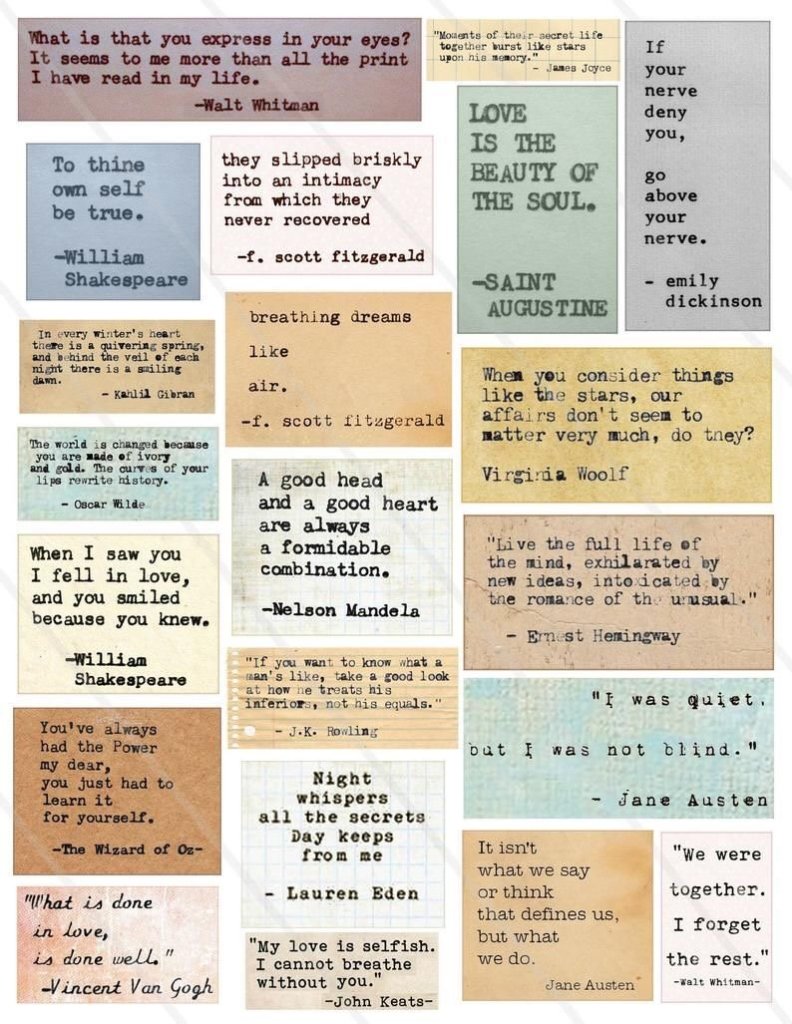 What is that you express in your eyes?
It seems to me more than all the print
I have read in my life.
—Walt Whitman
"Moments of their secret life
together burst like stars
upon his memory."
- James Joyce
If
your
nerve
deny
you,
go
above
your
nerve.
- emily
dickinson
To thine
own self
be true.
—William
Shakespeare
they slipped briskly
into an intimacy
from which they
never recovered
-f. scott fitzgerald
LOVE
IS THE
BEAUTY OF
THE SOUL.
—SAINT
AUGUSTINE
In every winter's heart
there is a quivering spring,
and behind the veil of each
night there is a smiling
dawn.
- Kahlil Gibran
breathing dreams
like
air.
-f. scott fitzgerald
When you consider things
like the stars, our
affairs don't seem to
matter very much, do they?
Virginia Woolf
The world is changed because
you are made of ivory
and gold. The curves of your
lips rewrite history.
- Oscar Wilde
A good head
and a good heart
are always
a formidable
combination.
—Nelson Mandela
"Live the full life of
the mind, exhilarated by
new ideas, intoxicated by
the romance of the unusual."
- Ernest Hemingway
When I saw you
I fell in love,
and you smiled
because you knew.
—William
Shakespeare
"If you want to know what a
man's like, take a good look
at how he treats his
inferiors, not his equals."
- J.K. Rowling
"I was quiet,
but I was not blind."
- Jane Austen
You've always
had the Power
my dear,
you just had to
learn it
for yourself.
-The Wizard of Oz-
Night
whispers
all the secrets
Day keeps
from me
- Lauren Eden
It isn't
what we say
or think
that defines us,
but what
we do.
Jane Austen
"We were
together.
I forget
the rest."
-Walt Whitman-
"What is done
in love,
is done well."
-Vincent Van Gogh
"My love is selfish.
I cannot breathe
without you."
-John Keats-